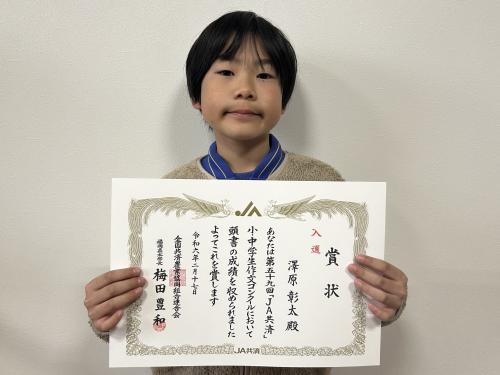 賞状
入選
澤原彰太殿
あなたは第五十九回「JA共済」
小・中学生作文コンクールにおいて
頭書の成績を収められました
よってこれを賞します
令和六年二月十七日
全国共済農業協同組合連合会
福岡県本部長 梅田豊和
JA共済